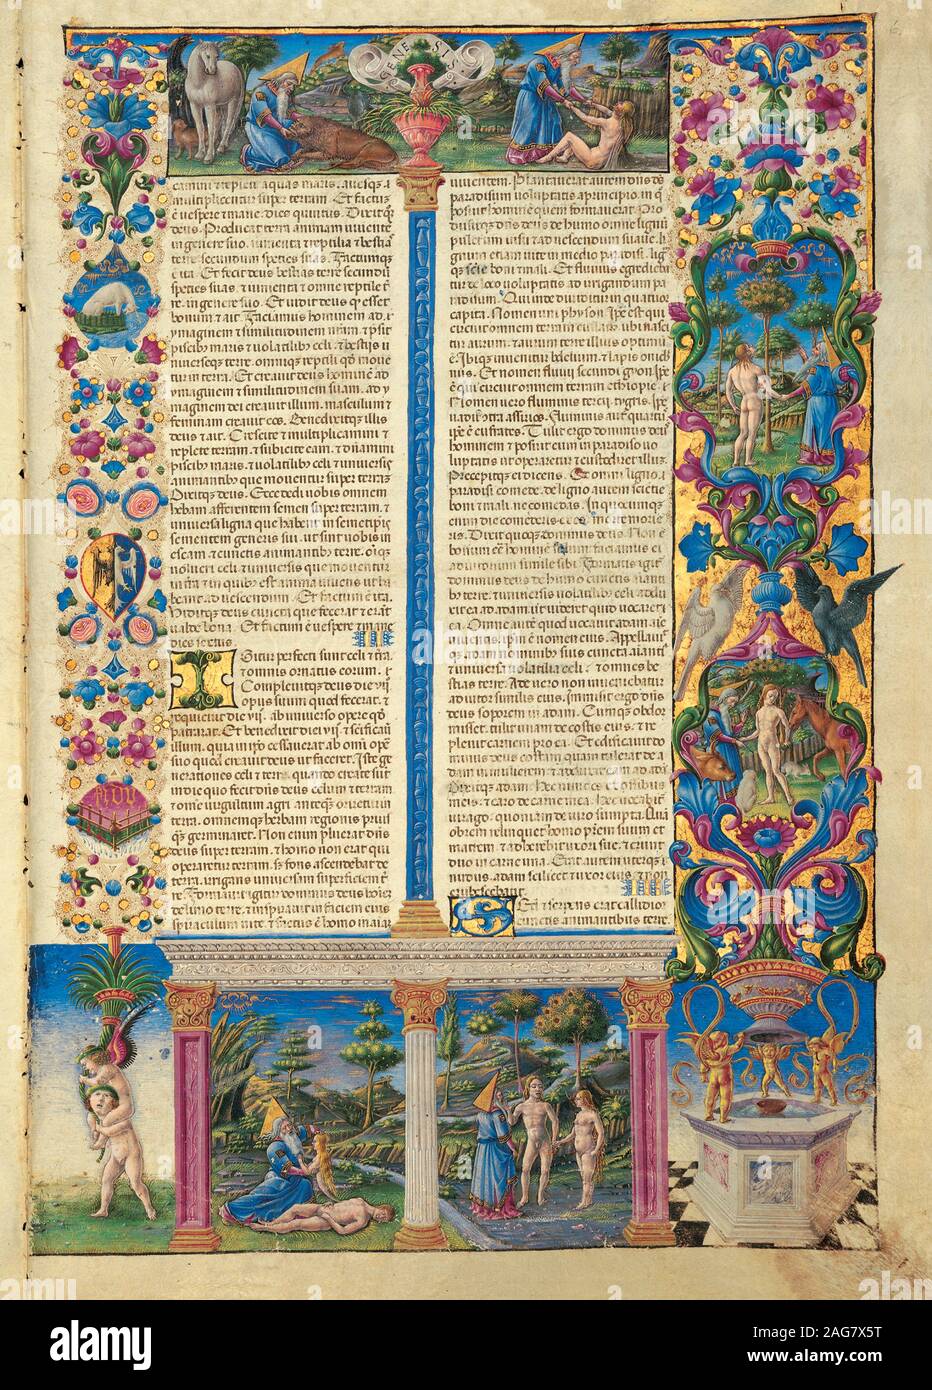 GENE SIS
camini et repleте aquas maris. avesqz
multiplicentur super terram. Et factū
ē vespere et mane. dies quintus. Dixit qz
deus. Producat terra animam viventē
in genere suo. iumenta et reptilia et bestias
terre. secundum species suas. Factumqz
ē ita. Et fecit deus bestias terre secundū
species suas. et iumenta et omne reptile
in genere suo. Et vidit deus qz esset
bonum et ait. Faciamus hominem ad
ymaginem et similitudinem nrām. et psit
piscibus maris et volatilibus celi. et bestijs
universeqz terre. omniqz reptili qd move
tur in terra. Et creavit deus hominē ad
ymaginem et similitudinem suam. ad y
maginem dei creavit illum. masculum et
feminam creavit eos. Benedixitqz illis
deus et ait. Crescite et multiplicamini et
replete terram. et subicite eam. et dominamini
piscibus maris. et volatilibus celi et universis
animantibus que moventur super terram
Dixitqz deus. Ecce dedi vobis omnem
herbam afferentem semen super terram. et
universa ligna que habent in semetipsis
sementem generis sui. ut sint vobis in
escam. et cunctis animantibus terre. oīqz
volucri celi. et universis que moventur
in terra. et in quibus est anima vivens. ut ha
beant ad vescendum. Et factum ē ita
Viditqz deus cuncta que fecerat. et erāt
valde bona. Et factum ē vespere et mane
dies sextus.
Igitur perfecti sunt celi et terra
et omnis ornatus eorum.
Complevitqz deus die vij
opus suum quod fecerat. et
requievit die vij. ab universo opere qd
patrarat. Et benedixit diei vij. et scificavit
illum. quia in ipo cessaverat ab omi opere
suo quod creavit deus ut faceret. Iste ge
nerationes celi et terre. quando create sunt
in die quo fecit dns deus celum et terram
et omē virgultum agri anteqz oriretur in
terra. omnemqz herbam regionis priusqz
germinaret. Non enim pluerat dns
deus super terram. et homo non erat qui
operaretur terram. sz fons ascendebat de
terra. irrigans universam superficiem terre.
Formavit igitur dominus deus hominē
de limo terre. et inspiravit in faciem eius
spiraculum vite. et factus ē homo in aiam
viventem. Plantaverat autem dns deus
paradisum voluptatis a principio. in q
posuit hominē quem formaverat. Pro
duxitqz dns deus de humo omne lignū
pulcrum visu et ad vescendum suave. li
gnum etiam vite in medio paradisi. lig
nūqz scie boni et mali. Et fluvius egrediebatur
de loco voluptatis ad irrigandum pa
radisum. Qui inde dividitur in quatuor
capita. Nomen uni physon. Ipe est qui
circuit omnem terram euilath. ubi nasci
tur aurum. et aurum terre illius optimū
ē. Ibiqz invenitur bdelium. et lapis onichi
nus. Et nomen fluvij secundi gyon. Ipe
ē qui circuit omnem terram ethiopie. Et
nomen vero fluminis tercij. tygris. Ipse
vadit contra assirios. Fluvius aut quartus
ipe ē eufrates. Tulit ergo dominus deus
hominem et posuit eum in paradiso vo
luptatis ut operaretur et custodiret illum.
Precepitqz ei dicens. Ex omni ligno
paradisi comede. de ligno autem scientie
boni et mali ne comedas. In quocunqz
enim die comederis ex eo. morte morie
ris. Dixit quoqz dominus deus. Non ē
bonum esse hominē solum. faciamus ei
adiutorium simile sibi. Formatis igitur
dominus deus de humo cunctis animan
tibus terre. et universis volatilibus celi. addu
xit ea ad adam. ut videret quid vocaret
ea. Omne autē quod vocavit adam aīe
viventis. ipm ē nomen eius. Appellavitqz
adam nominibus suis cuncta aiantia
et universa volatilia celi. et omnes be
stias terre. Ade vero non inveniebatur
adiutor similis eius. immisit ergo dns
deus soporem in adam. Cumqz obdor
misset. tulit unam de costis eius. et re
plevit carnem pro ea. Et edificavit do
minus deus costam quam tulerat de a
dam in mulierem. et adduxit eam ad adam
Dixitqz adam. Hoc nunc os ex ossibus
meis. et caro de carne mea. Hec vocabitur
virago. quoniam de viro sumpta. Qua
obrem relinquet homo patrem suum et
matrem. et adherebit uxori sue. et erunt
duo in carne una. Erat autem uterqz
nudus. adam scilicet et uxor eius. et non
erubescebant.
Sed et serpens erat callidior
cunctis animantibus terre.
alamy
Image ID: 2AG7X5T
www.alamy.com